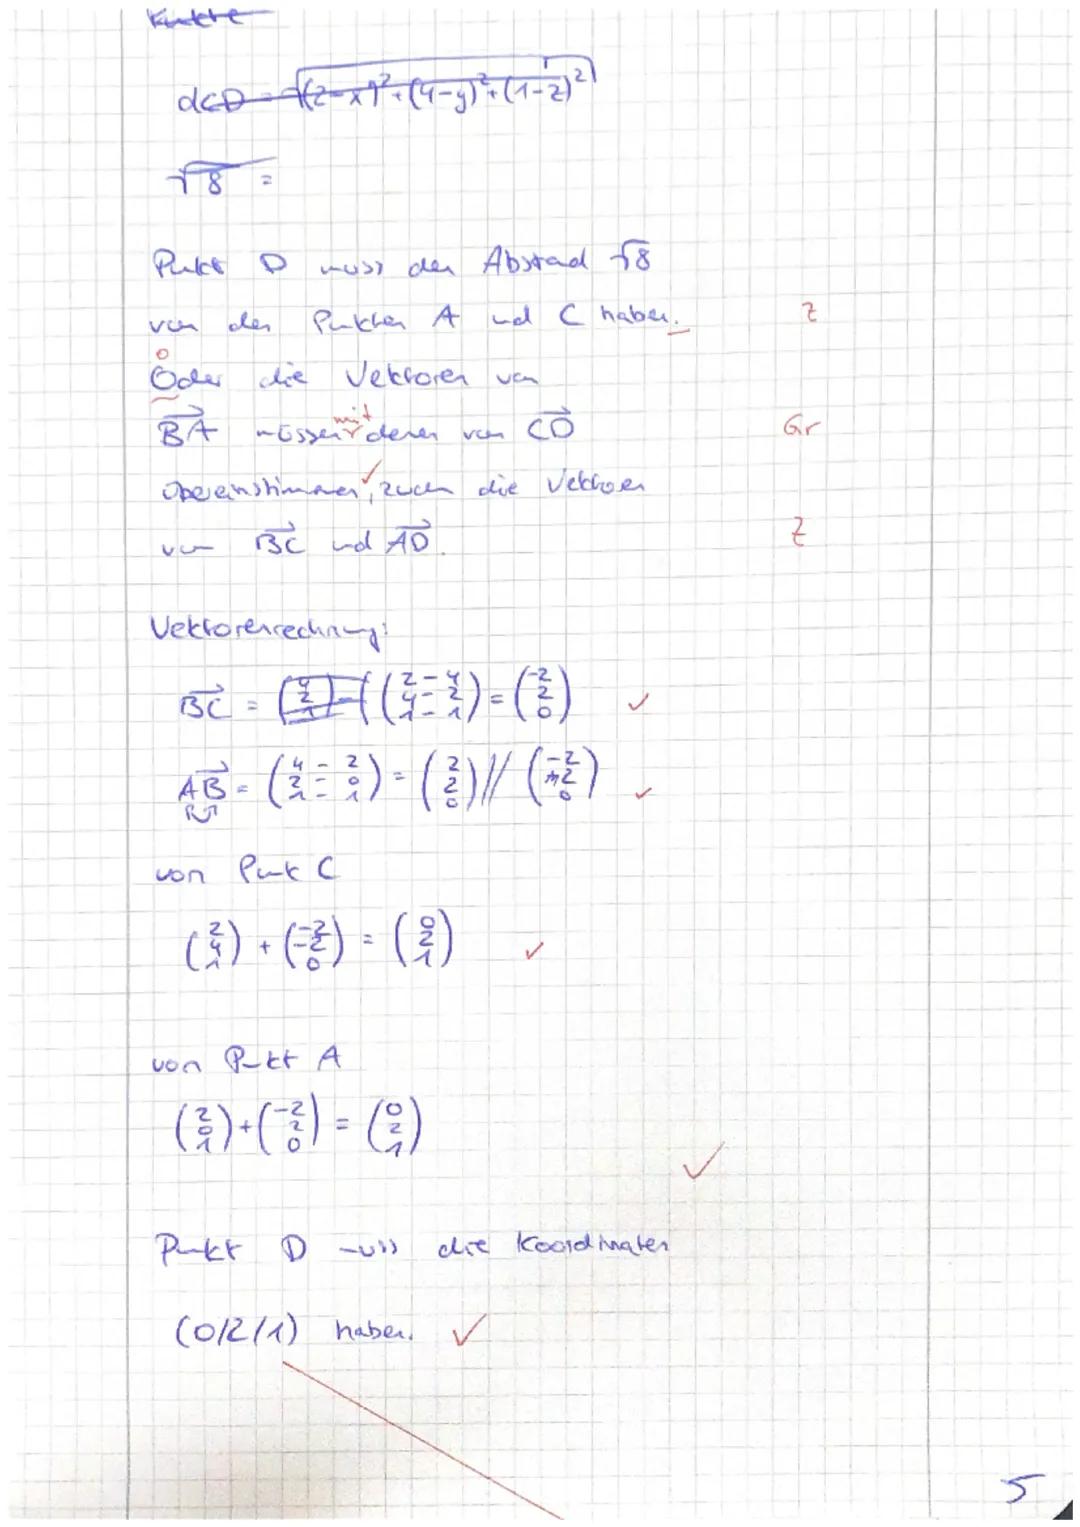 Punkte
dCD = √((2-x)²+(4-y)²+(1-z)²)
√8 =
Punkt D muss den Abstand √8
von den Punkten A und C haben. Z
o
Oder die Vektoren von
mit
BA müssen denen von CD Gr
übereinstimmen, auch die Vektoren
von BC und AD. Z
Vektorenrechnung:
BC = (4 2 1) - ( (2-4 4-2 1-1) = (-2 2 0) ✓
AB = (4-2 2-0 1-1) = (2 2 0) // (-2 -2 0) ✓
von Punkt C
(2 4 1) + (-2 -2 0) = (0 2 1) ✓
von Punkt A
(2 0 1) + (-2 2 0) = (0 2 1)
✓
Punkt D muss die Koordinaten
(0/2/1) haben. ✓
5